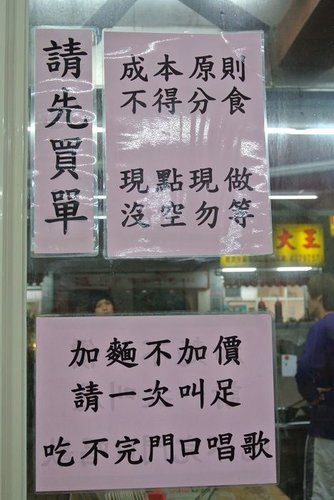 請先買單
成本原則
不得分食
現點現做
沒空勿等
大王
加麵不加價
請一次叫足
吃不完門口唱歌